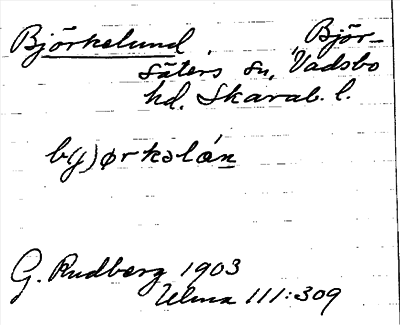 Björkelund Björ-
säters sn, Vadsbo
hd. Skarab. l.
b(j)ørkəlón
G. Rudberg 1903
Ulma 111:309